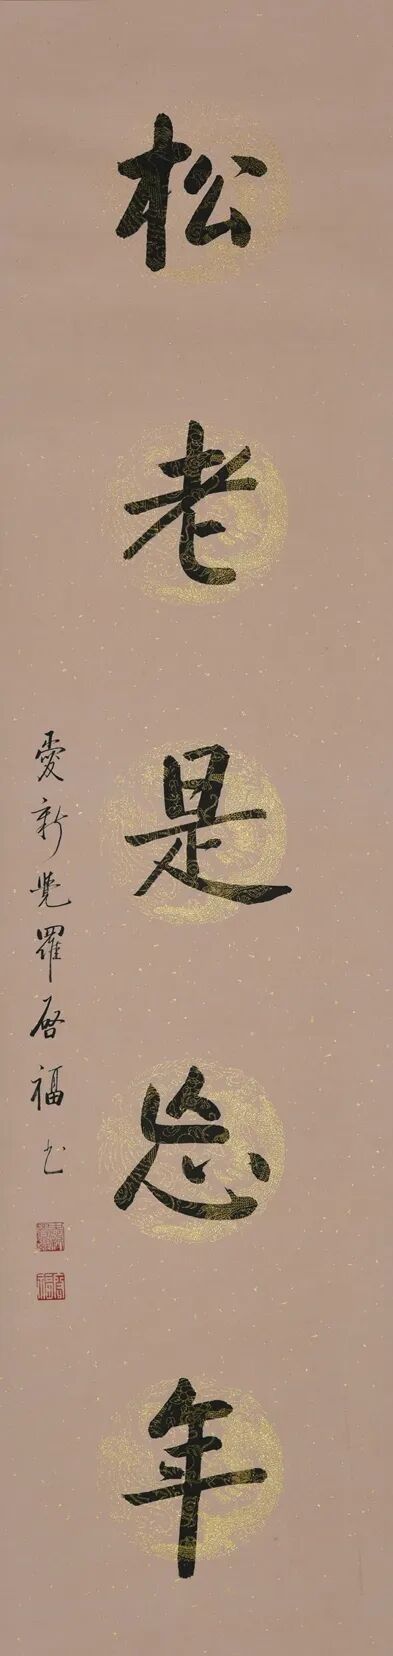 松老是忘年
愛新覺羅啓福书